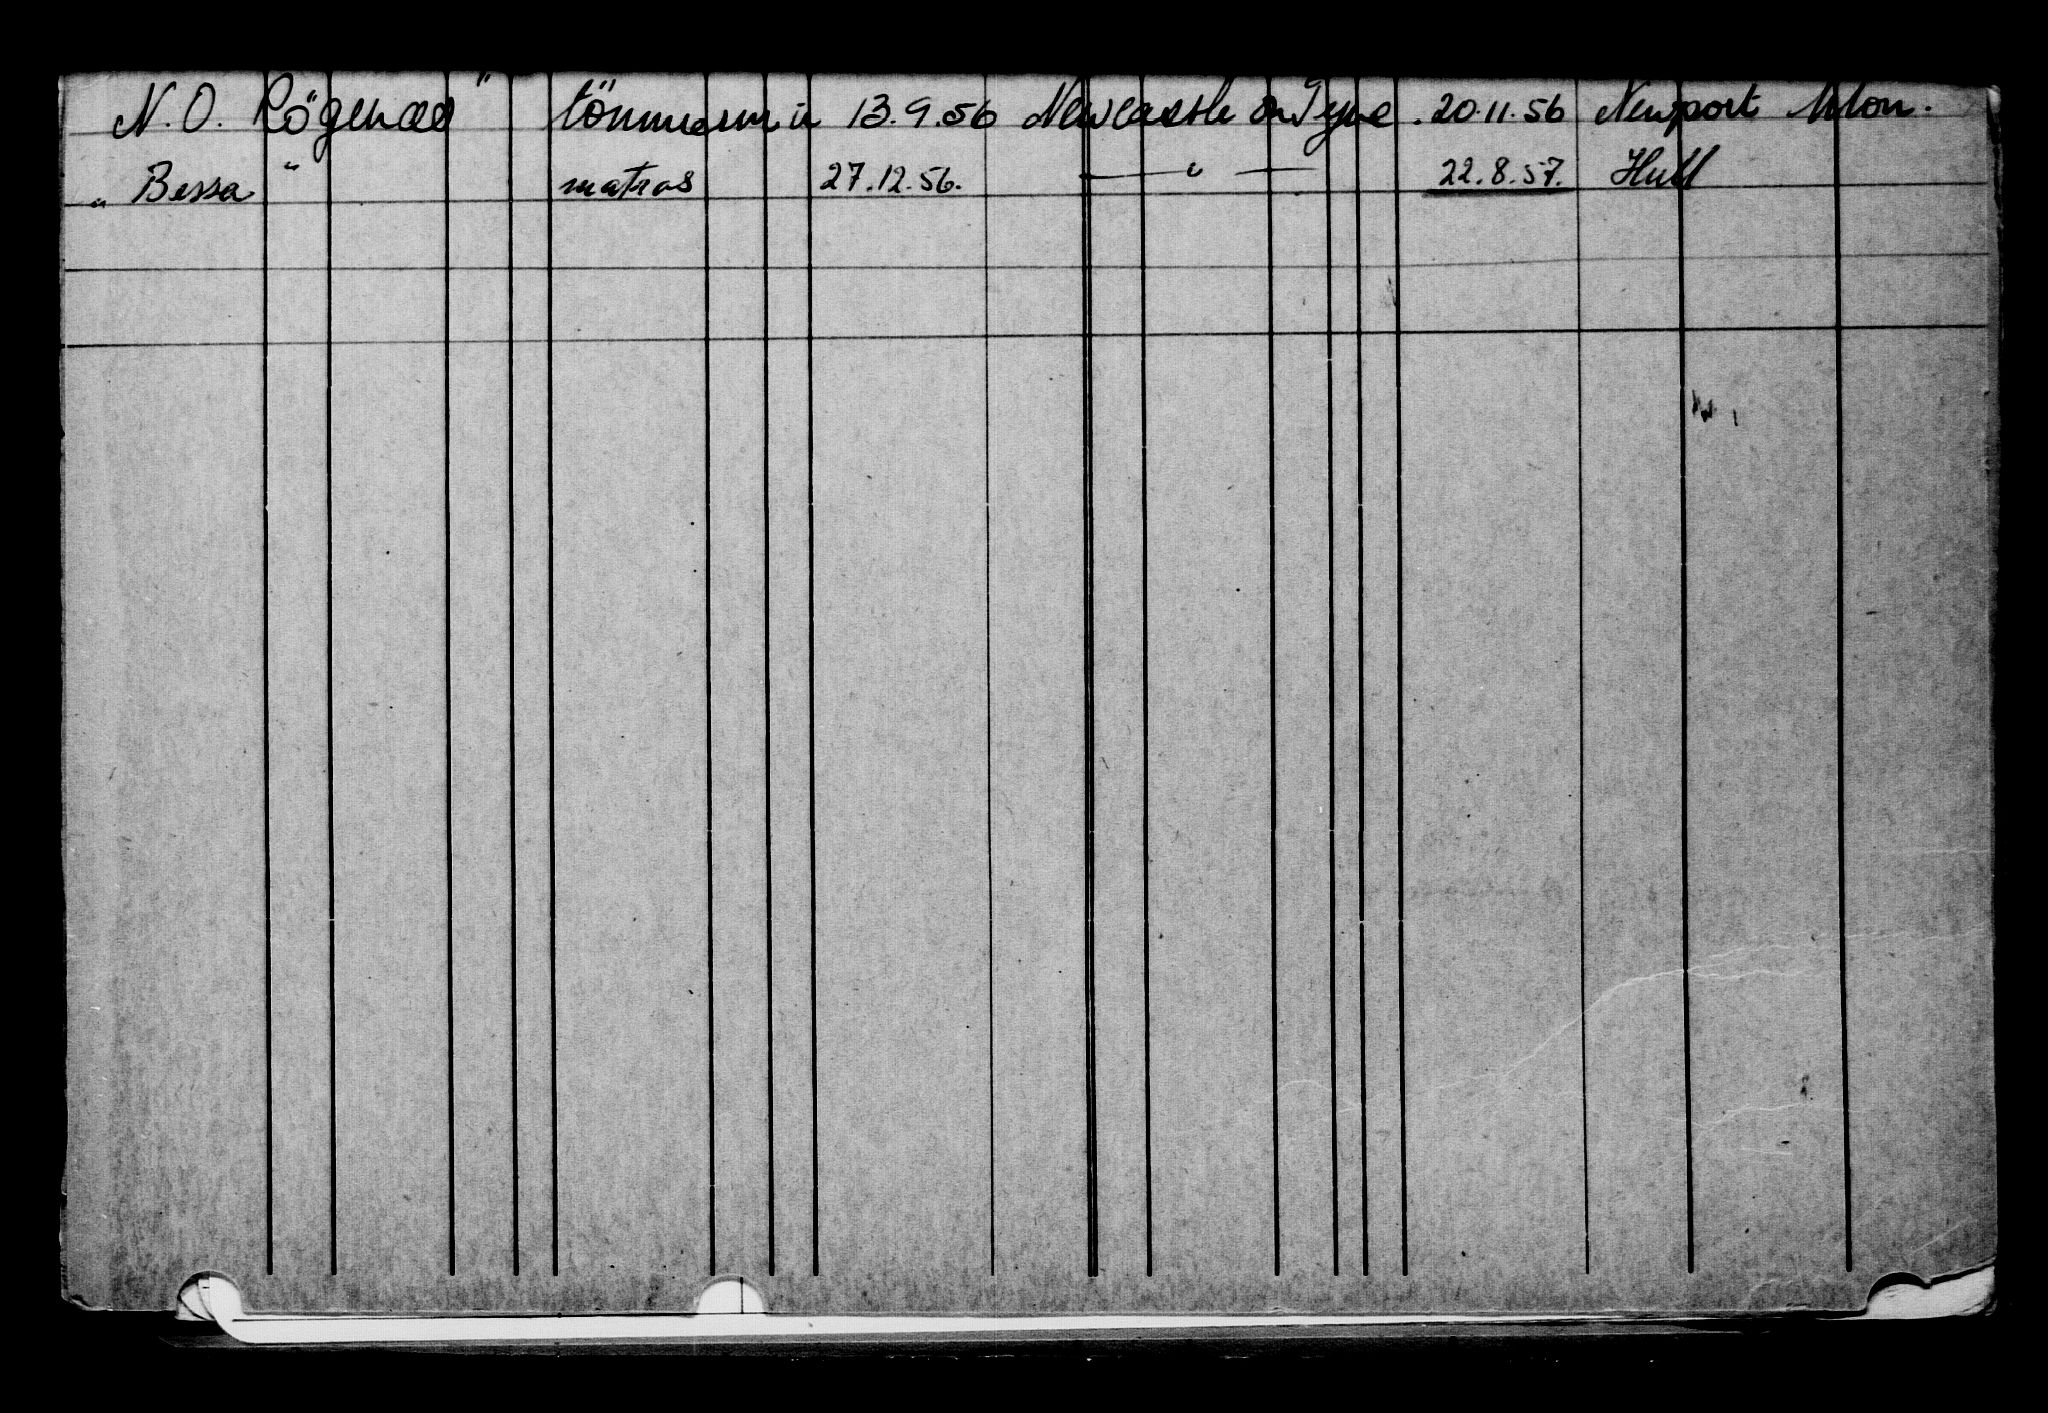 N.O. Rögenæs " tömmerm ü 13.9.56 Newcastle on Tyne . 20.11.56 Newport Mon.
" Bessa " matros 27.12.56. — " — 22.8.57. Hull